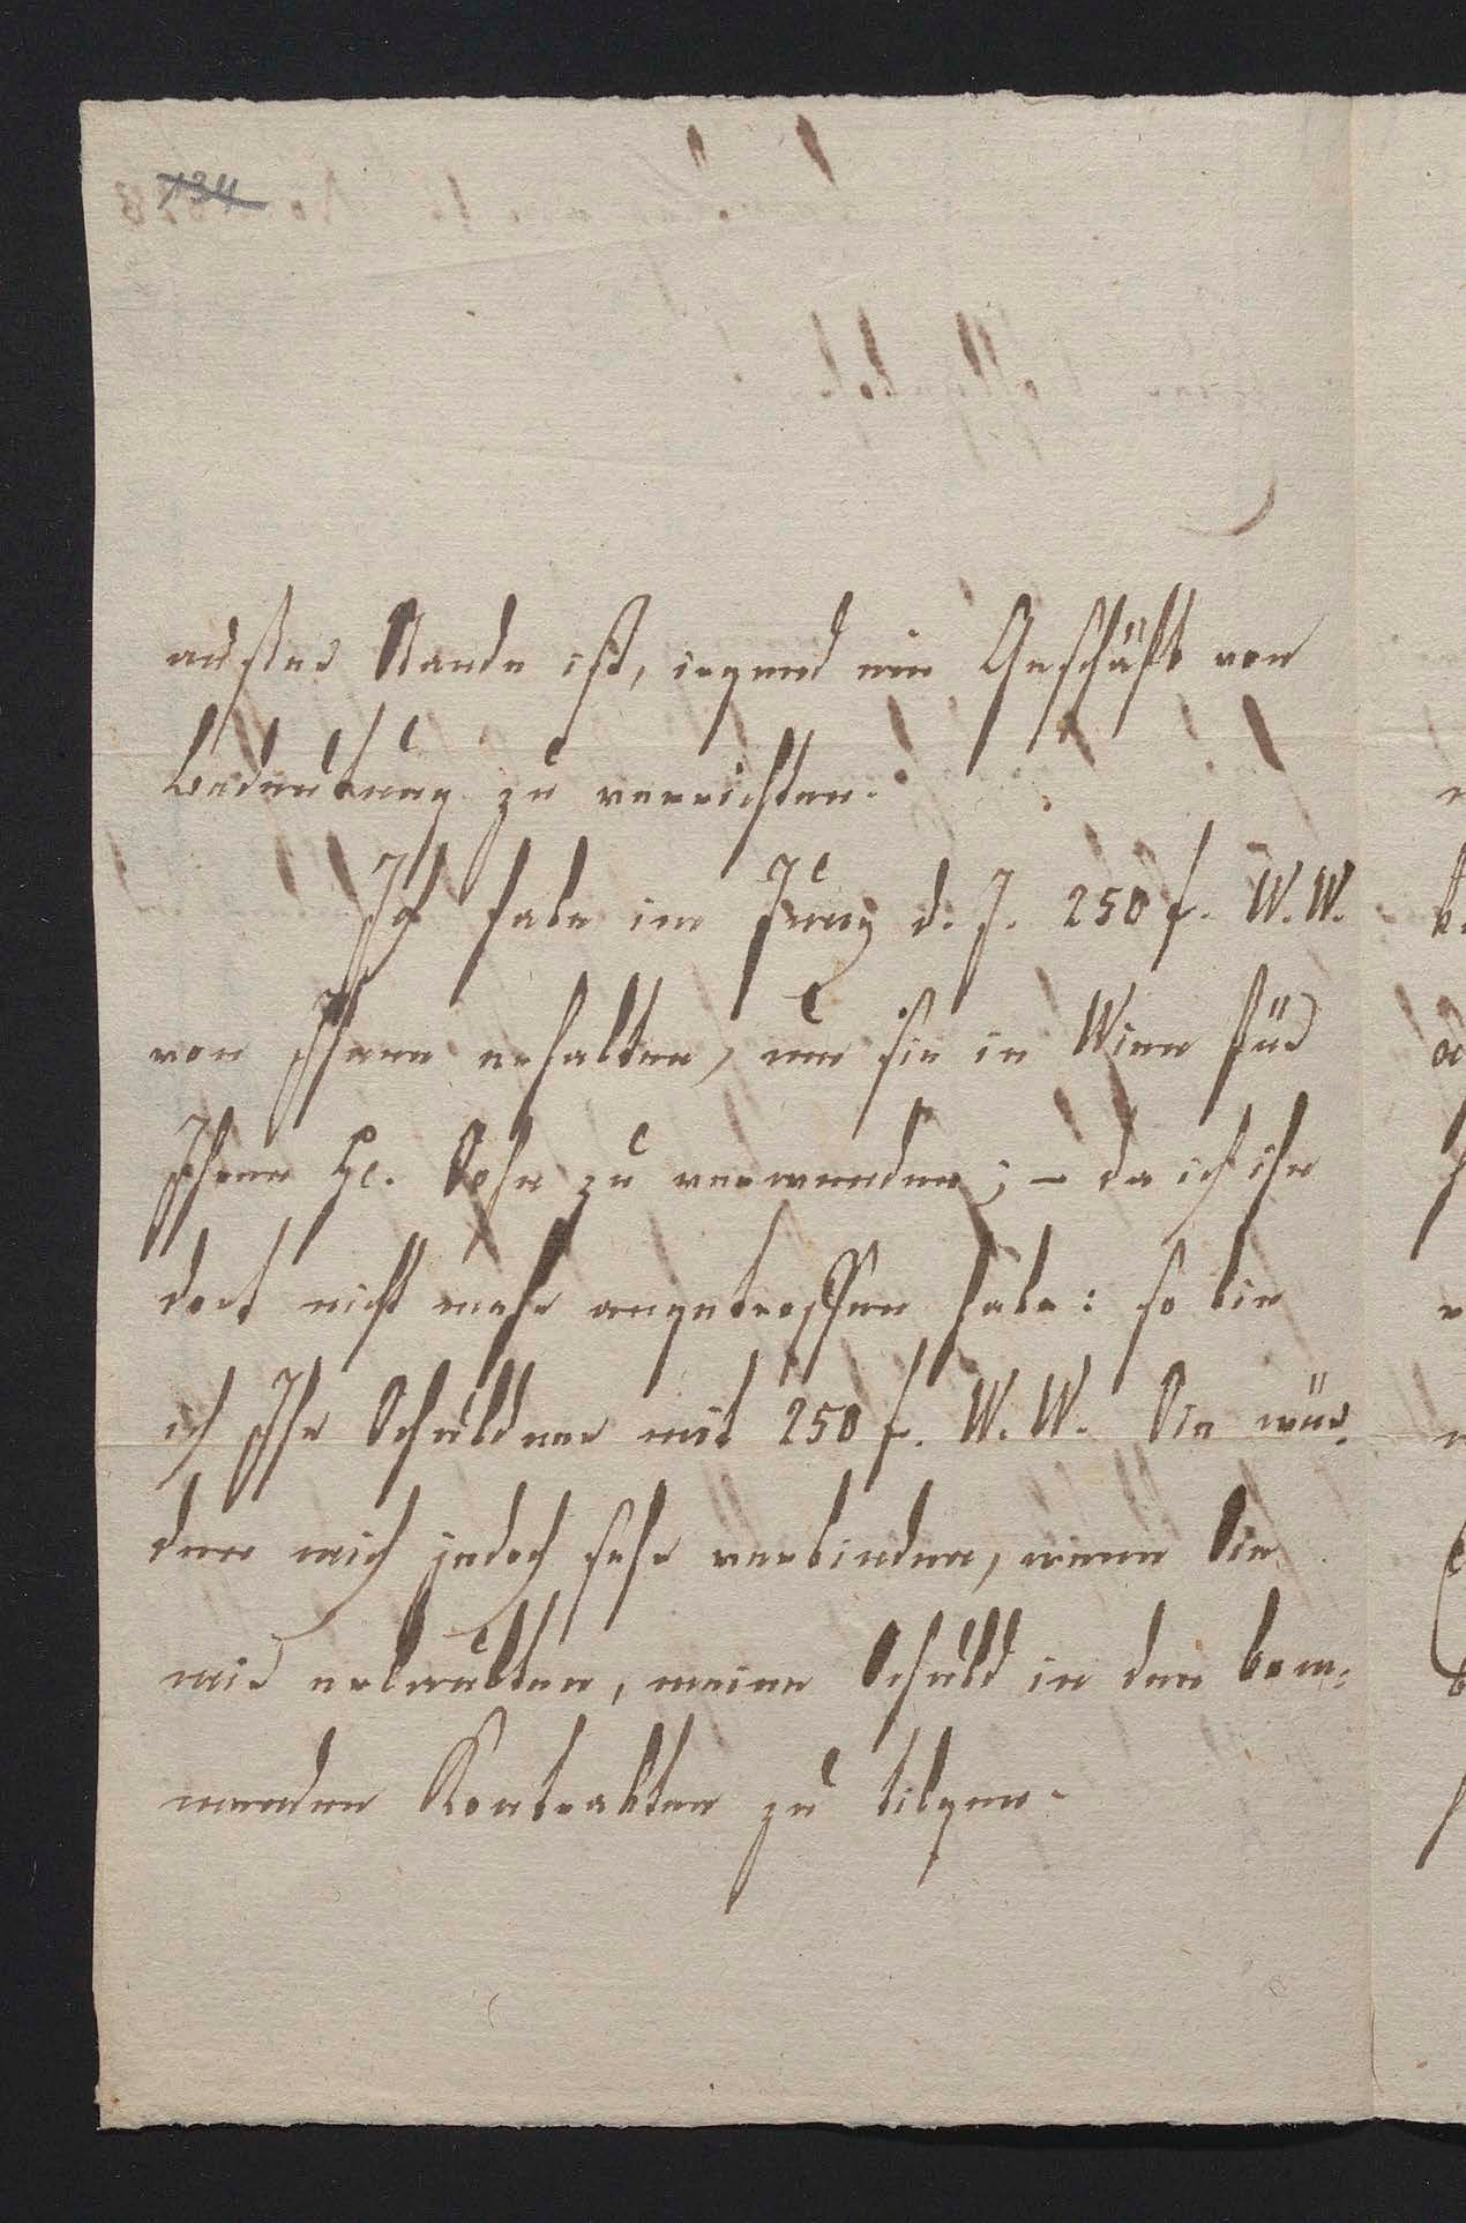 134
außer Stande ist, irgend ein Geschäft von
Bedeutung zu verrichten.
Ich habe im Juny d. J. 250 f. W. W.
von Ihnen erhalten, um sie in Wien für
Ihren H. Sohn zu verwenden; – da ich ihn
dort nicht mehr angetroffen habe: so bin
ich Ihr Schuldner mit 250 f. W. W. Sie wür-
den mich jedoch sehr verbinden, wenn Sie
mir erlaubten, meine Schuld in den kom-
menden Kontrakten zu tilgen.